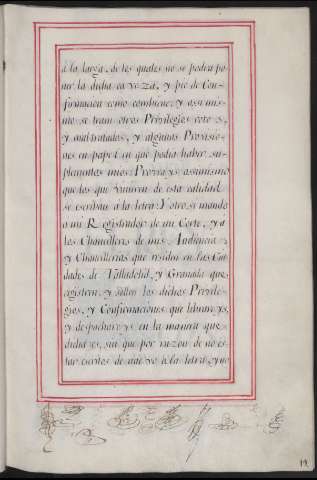 â la larga, de los quales no se podra po
ner la dicha caveza, y pie de Con-
firmacion como combiene; y assimis-
mo se traen otros Privilegios rotos,
y maltratados, y algunas Provisio-
nes en papel en que podia haber su-
plementos mios: Proveays assimismo
que los que vinieren de esta calidad
se escriban a la letra: Y otro si mando
a mi Registrador de mi Corte, y a
los Chancilleres de mis Audiencias
y Chancillerias que residen en las Ciu
dades de Valladolid, y Granada que
registren, y sellen los dichos Privile-
gios, y Confirmaciones que libraredeys,
y despachareys en la manera que
dicha es, sin que por razon de no es-
tar escritos de nuevo â la letra, y no
19